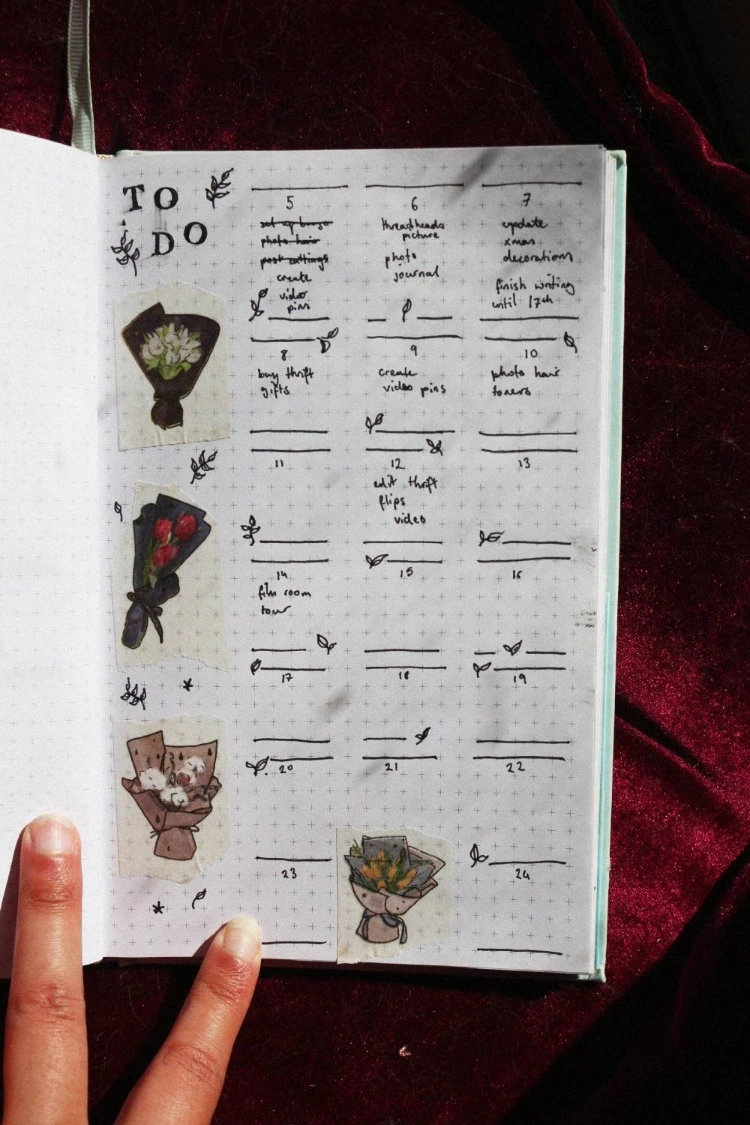 TO
DO
5
set up bujo
photo hair
post cuttings
create
video
pins
6
threadheads
picture
photo
journal
7
update
xmas
decorations
finish writing
until 17th
8
buy thrift
gifts
9
create
video pins
10
photo hair
toners
11
12
edit thrift
flips
video
13
14
film room
tour
15
16
17
18
19
20
21
22
23
24